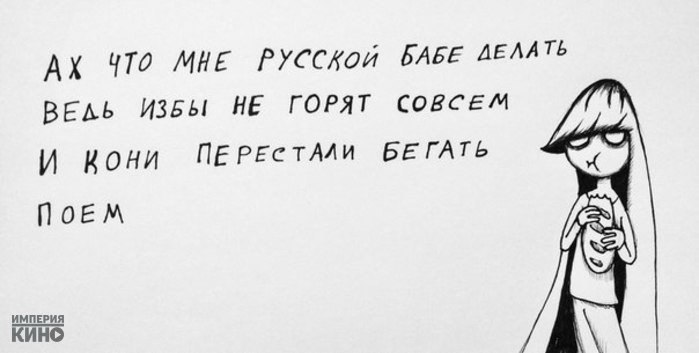 АХ ЧТО МНЕ РУССКОЙ БАБЕ ДЕЛАТЬ
ВЕДЬ ИЗБЫ НЕ ГОРЯТ СОВСЕМ
И КОНИ ПЕРЕСТАЛИ БЕГАТЬ
ПОЕМ
ИМПЕРИЯ
КИНО